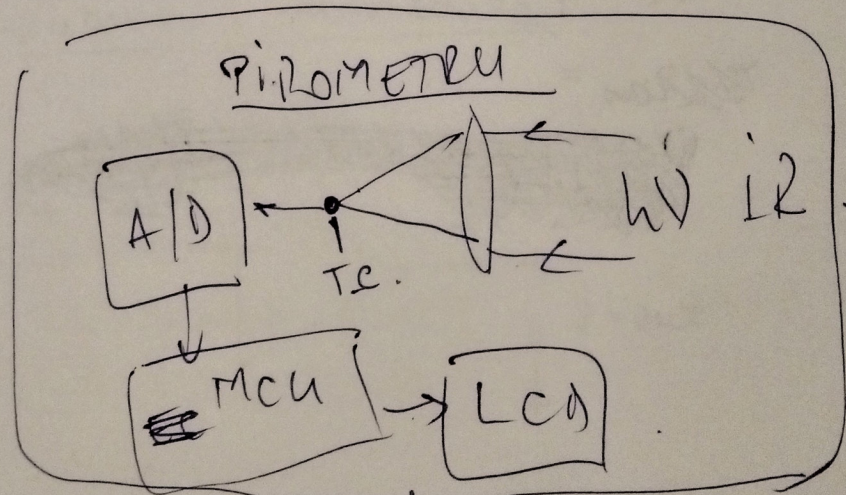 PIROMETRU
A/D
T.C.
hν IR
MCU
LCD